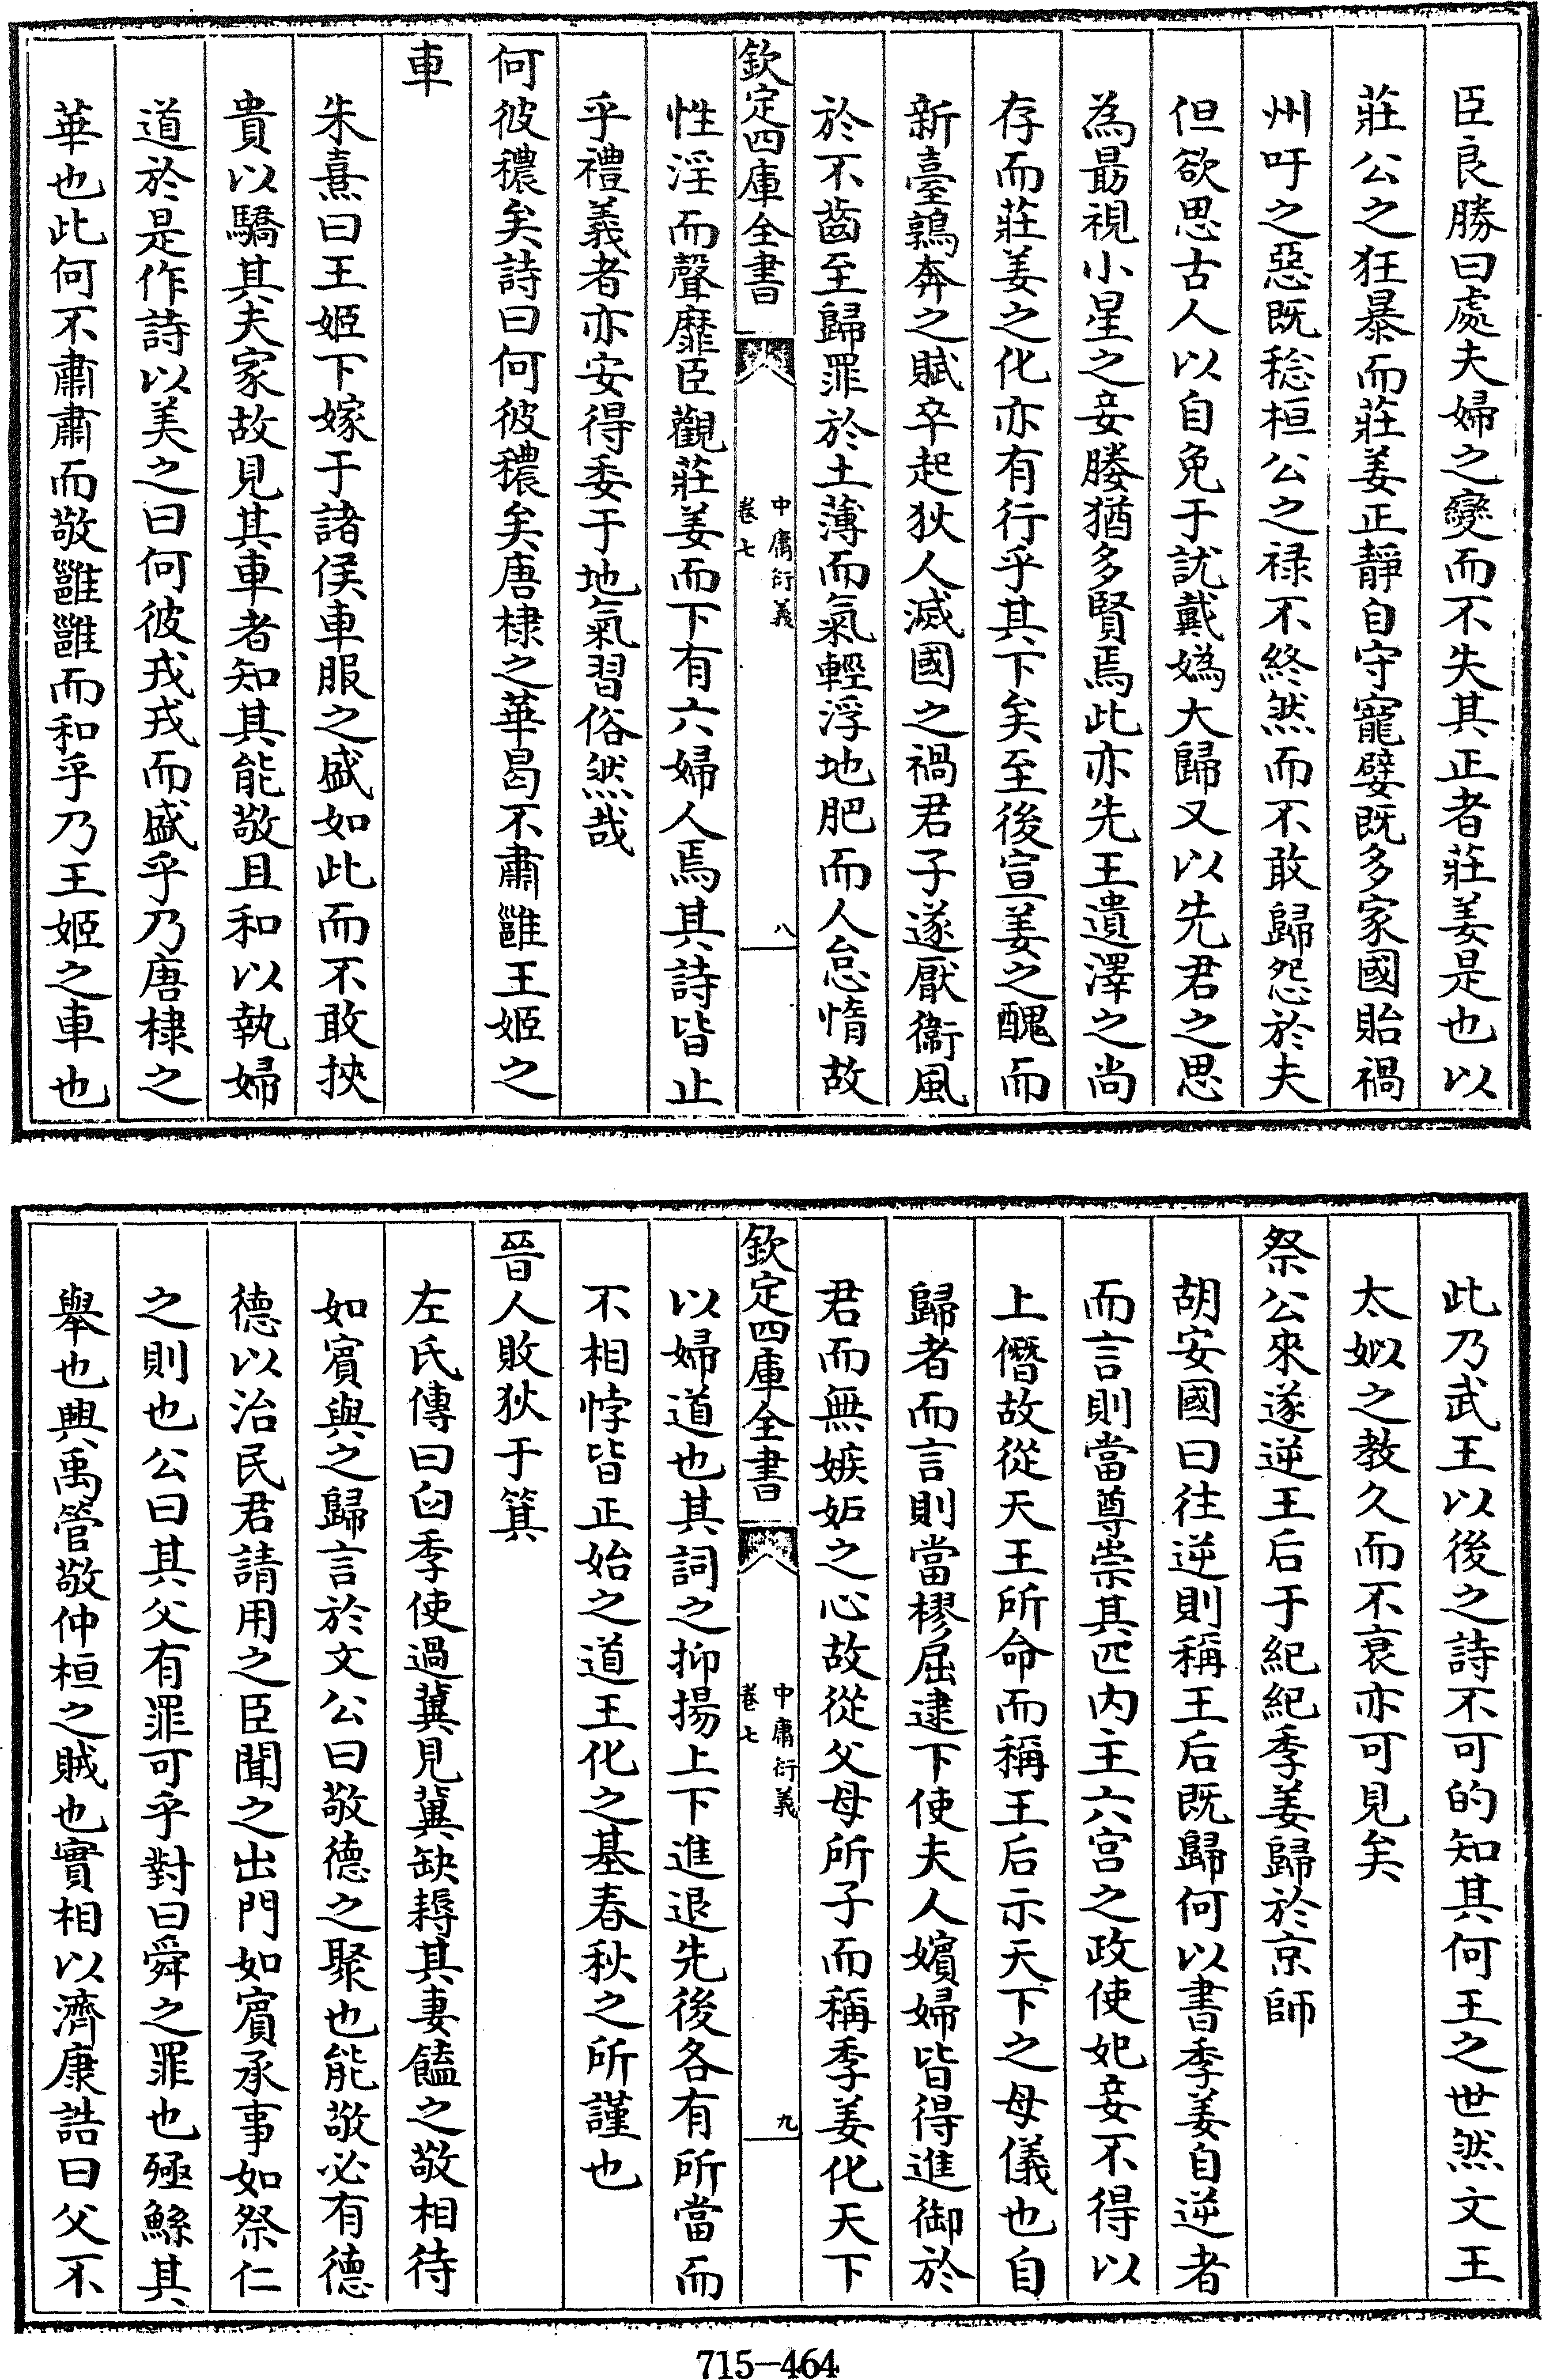 臣良勝曰處夫婦之變而不失其正者莊姜是也以
莊公之狂暴而莊姜正靜自守寵嬖既多家國貽禍
州吁之惡既稔桓公之祿不終然而不敢歸怨於夫
但欲思古人以自免于訧戴媯大歸又以先君之思
為勗視小星之妾媵猶多賢焉此亦先王遺澤之尚
存而莊姜之化亦有行乎其下矣至後宣姜之醜而
新臺鶉奔之賦卒起狄人滅國之禍君子遂厭衞風
於不齒至歸罪於土薄而氣輕浮地肥而人怠惰故
欽定四庫全書
中庸衍義
卷七
八
性淫而聲靡臣觀莊姜而下有六婦人焉其詩皆止
乎禮義者亦安得委于地氣習俗然哉
何彼穠矣詩曰何彼穠矣唐棣之華曷不肅雝王姬之
車
朱熹曰王姬下嫁于諸侯車服之盛如此而不敢挾
貴以驕其夫家故見其車者知其能敬且和以執婦
道於是作詩以美之曰何彼戎戎而盛乎乃唐棣之
華也此何不肅肅而敬雝雝而和乎乃王姬之車也
此乃武王以後之詩不可的知其何王之世然文王
太姒之教久而不衰亦可見矣
祭公來遂逆王后于紀紀季姜歸於京師
胡安國曰往逆則稱王后既歸何以書季姜自逆者
而言則當尊崇其匹内主六宫之政使妃妾不得以
上僭故從天王所命而稱王后示天下之母儀也自
歸者而言則當樛屈逮下使夫人嬪婦皆得進御於
君而無嫉妬之心故從父母所子而稱季姜化天下
欽定四庫全書
中庸衍義
卷七
九
以婦道也其詞之抑揚上下進退先後各有所當而
不相悖皆正始之道王化之基春秋之所謹也
晉人敗狄于箕
左氏傳曰臼季使過冀見冀缺耨其妻饁之敬相待
如賓與之歸言於文公曰敬德之聚也能敬必有德
德以治民君請用之臣聞之出門如賓承事如祭仁
之則也公曰其父有罪可乎對曰舜之罪也殛鯀其
舉也興禹管敬仲桓之賊也實相以濟康誥曰父不
715-464